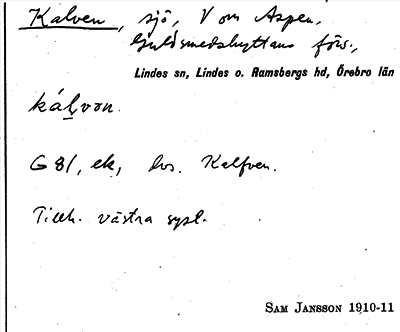 Kalven, sjö, V om Aspen,
Guldsmedshyttans förs.,
Lindes sn, Lindes o. Ramsbergs hd, Örebro län
kálvon.
G 81, ek, hos. Kalfven.
Tillh. västra syst.
SAM JANSSON 1910-11